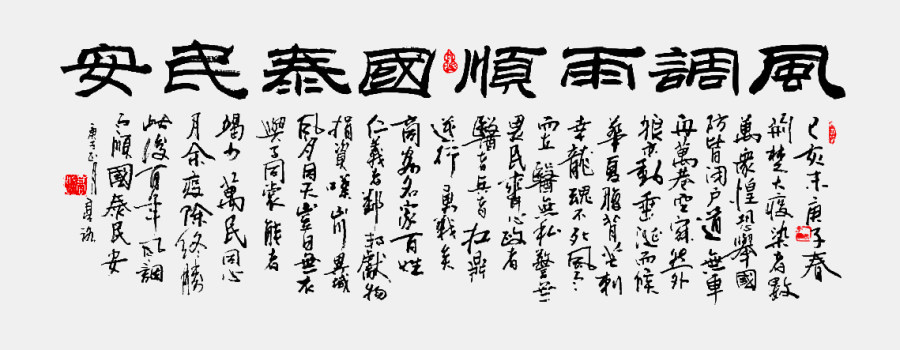 風調雨順國泰民安
己亥末庚子春
荊楚大疫染者數
萬衆惶恐舉國
防皆閉户道無車
舟萬巷空寂然外
狼動垂涎而候
華夏腹背芒刺
幸龍魂不死風
而立醫無私警無
畏民齊心政者
醫者兵者扛鼎
逆行勇戰矣
商名家百姓
仁義者鄰邦獻物
捐資嘆山川異域
風月同天豈曰無衣
與子同裳能者
竭力萬民同心
月余疫除終勝
此後百年風調
雨順國泰民安
庚子正月